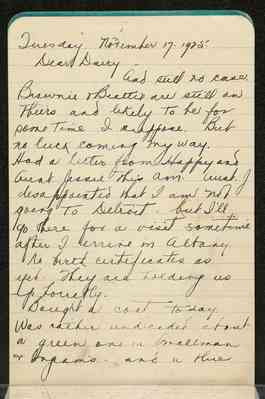 Tuesday, November 17, 1925
Dear Dairy -
And still no case.
Brownie & Beattie are still on
theirs and likely to be for
some time I suppose. But
no luck coming my way.
Had a letter from Happy and
Aunt Jessie this am. Aunt J
disappointed that I am not
going to Detroit - but I'll
go there for a visit sometime
after I arrive in Albany.
No birth certificates as
yet. They are holding us
up horribly.
Bought a coat to-day
Was rather undecided about
a green one in
or - and a blue